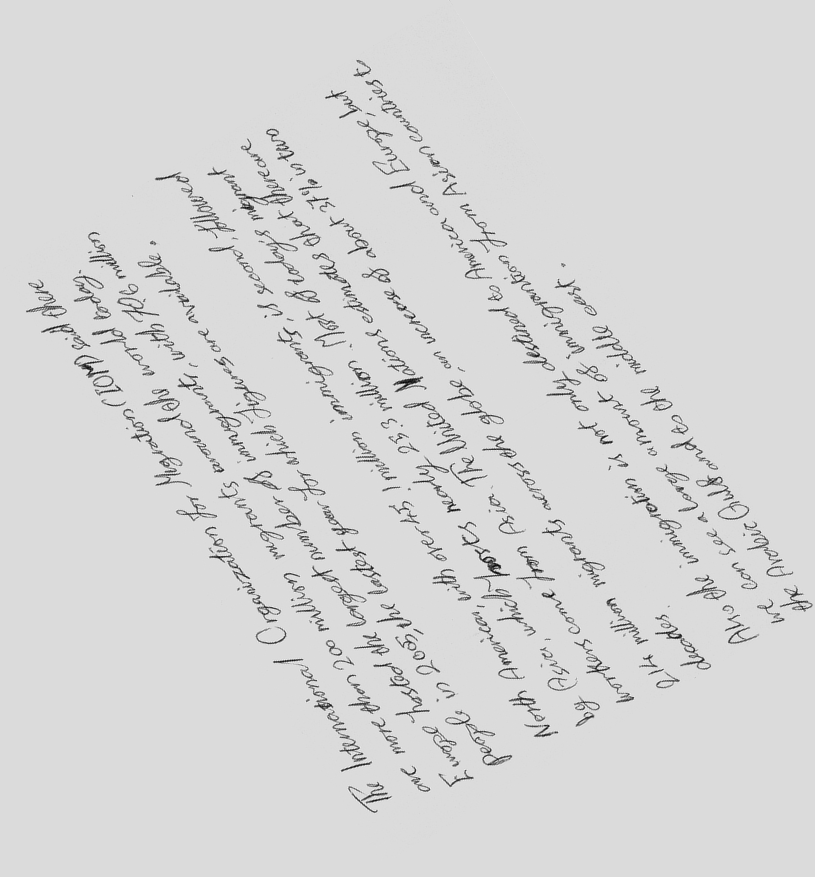 The International Organization for Migration (IOM) said there
are more than 200 million migrants around the world today.
Europe hosted the largest number of immigrants, with 70.6 million
people in 2005, the lastest year for which figures are available.
North American, with over 45.1 million immigrants, is second, followed
by Asia, which hosts nearly 25.3 million. Most of today's migrant
workers come from Asia. The United Nations estimates that there are
214 million migrants across the globe, an increase of about 37% in two
decades.
Also the immigration is not only declined to America and Europe, but
we can see a large amount of immigration from Asian countries to
the Arabic Gulf and to the middle east.